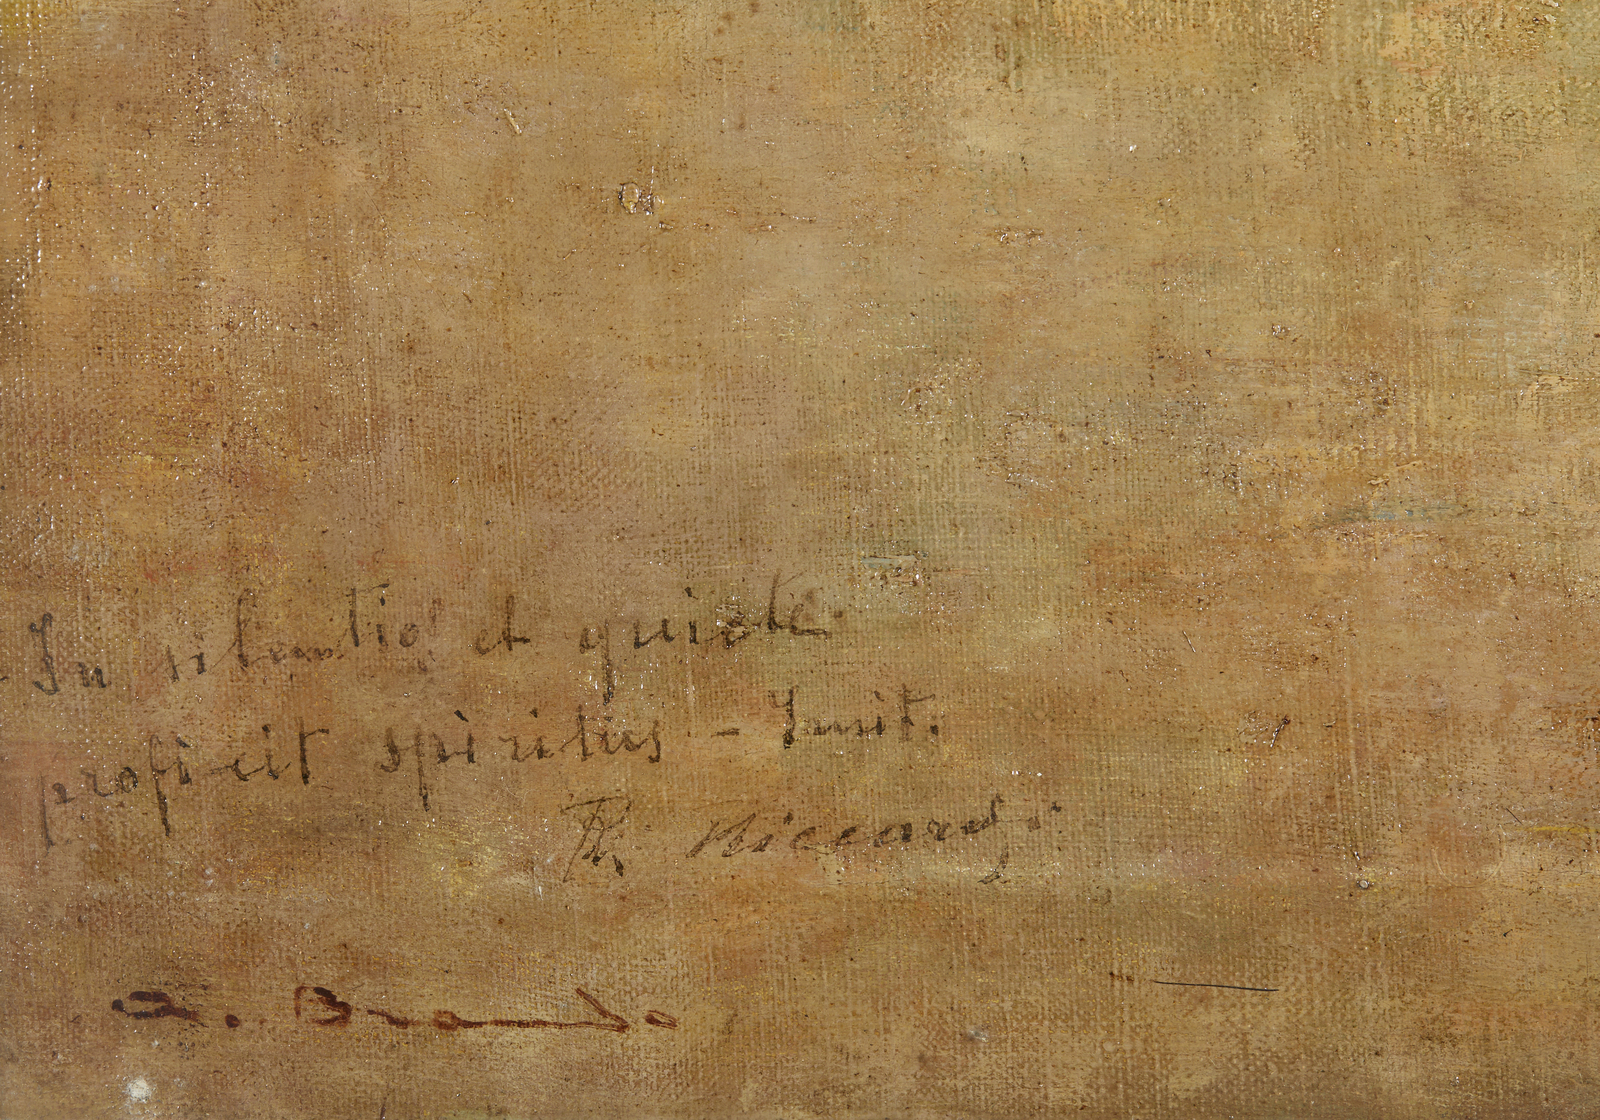 In silentio et quiete
proficit spiritus - Imit.
R. Riccardi
A. Brando